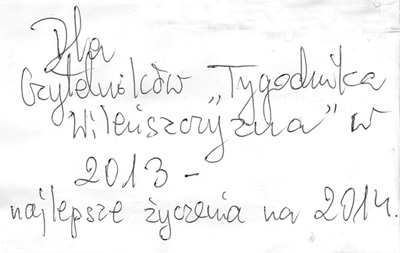 Dla
Czytelników „Tygodnika
Wileńszczyzna” w
2013 -
najlepsze życzenia na 2014.